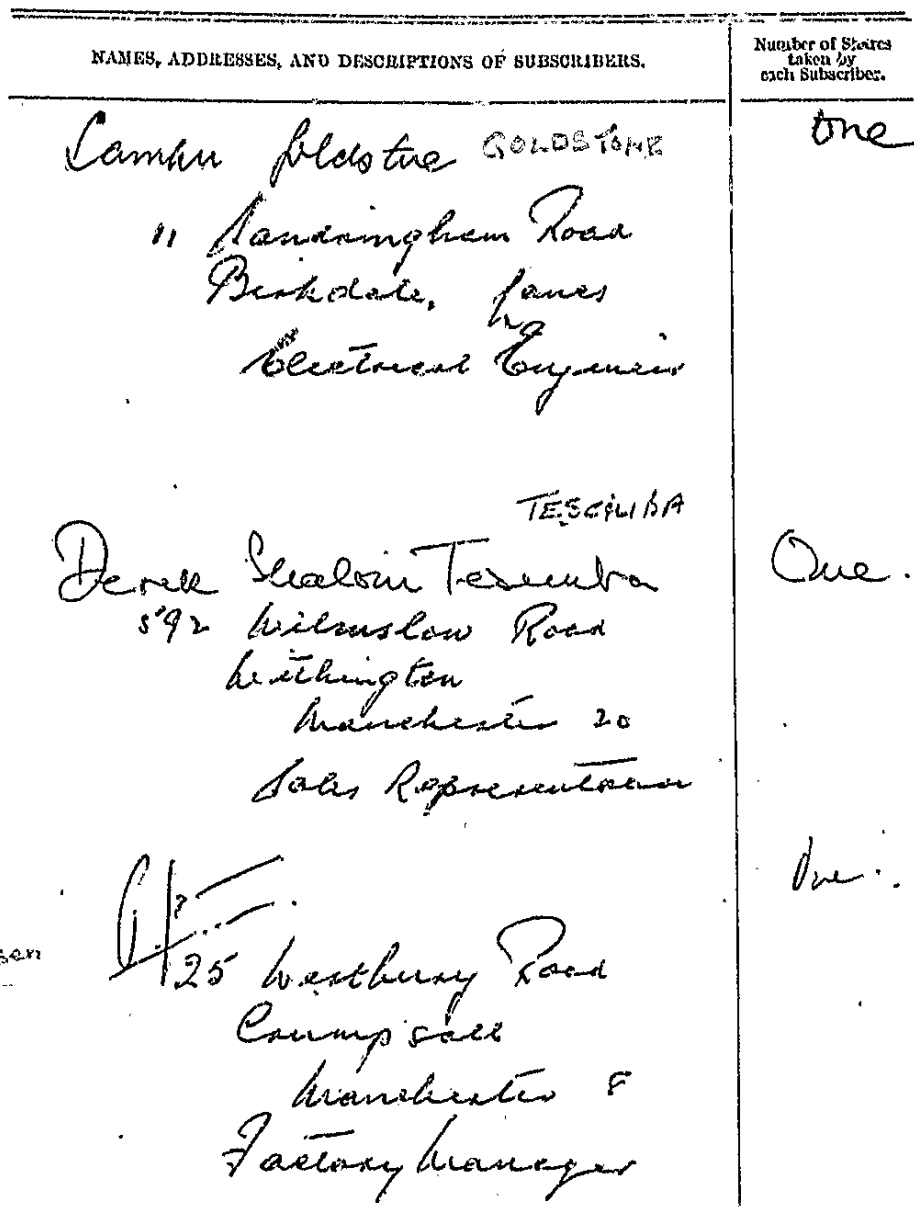 NAMES, ADDRESSES, AND DESCRIPTIONS OF SUBSCRIBERS.
Number of Shares
taken by
each Subscriber.
Goldstone GOLDSTONE
One
11 Sandringham Road
Birkdale, Lancs
Electrical Engineer
TESCIUBA
Derek Shalom Tesciuba
One.
592 Wilmslow Road
Withington
Manchester 20
Sales Representative
One.
25 Westbury Road
Crumpsall
Manchester 8
Factory Manager